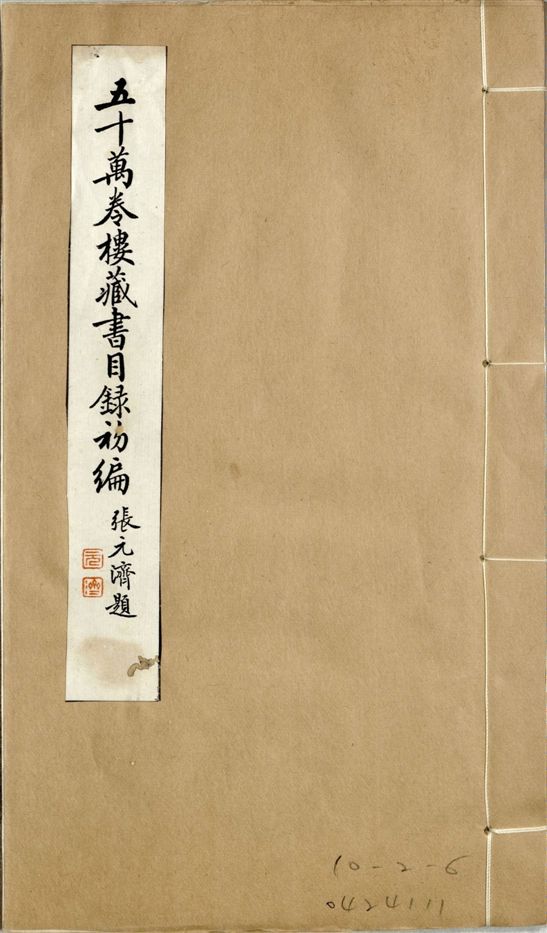 五十萬卷樓藏書目録初編
張元濟題
元
濟
10-2-6